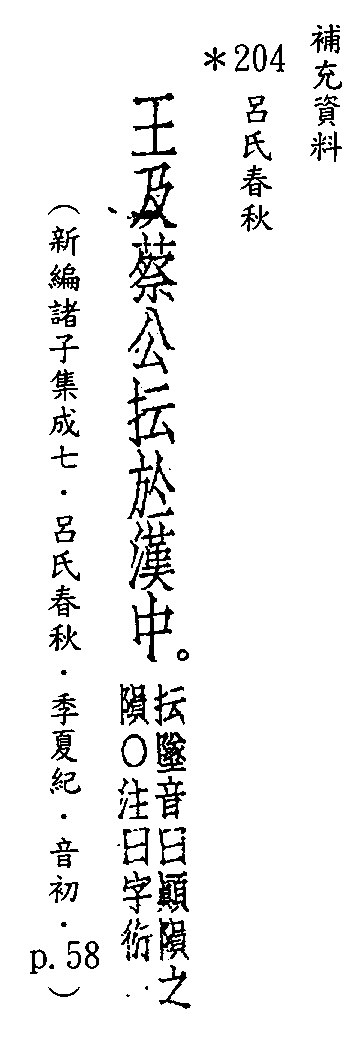 補充資料
*204 呂氏春秋
王及蔡公抎於漢中。
抎墜音曰顚隕之
隕○注曰字衍
(新編諸子集成七．呂氏春秋．季夏紀．音初．p.58)